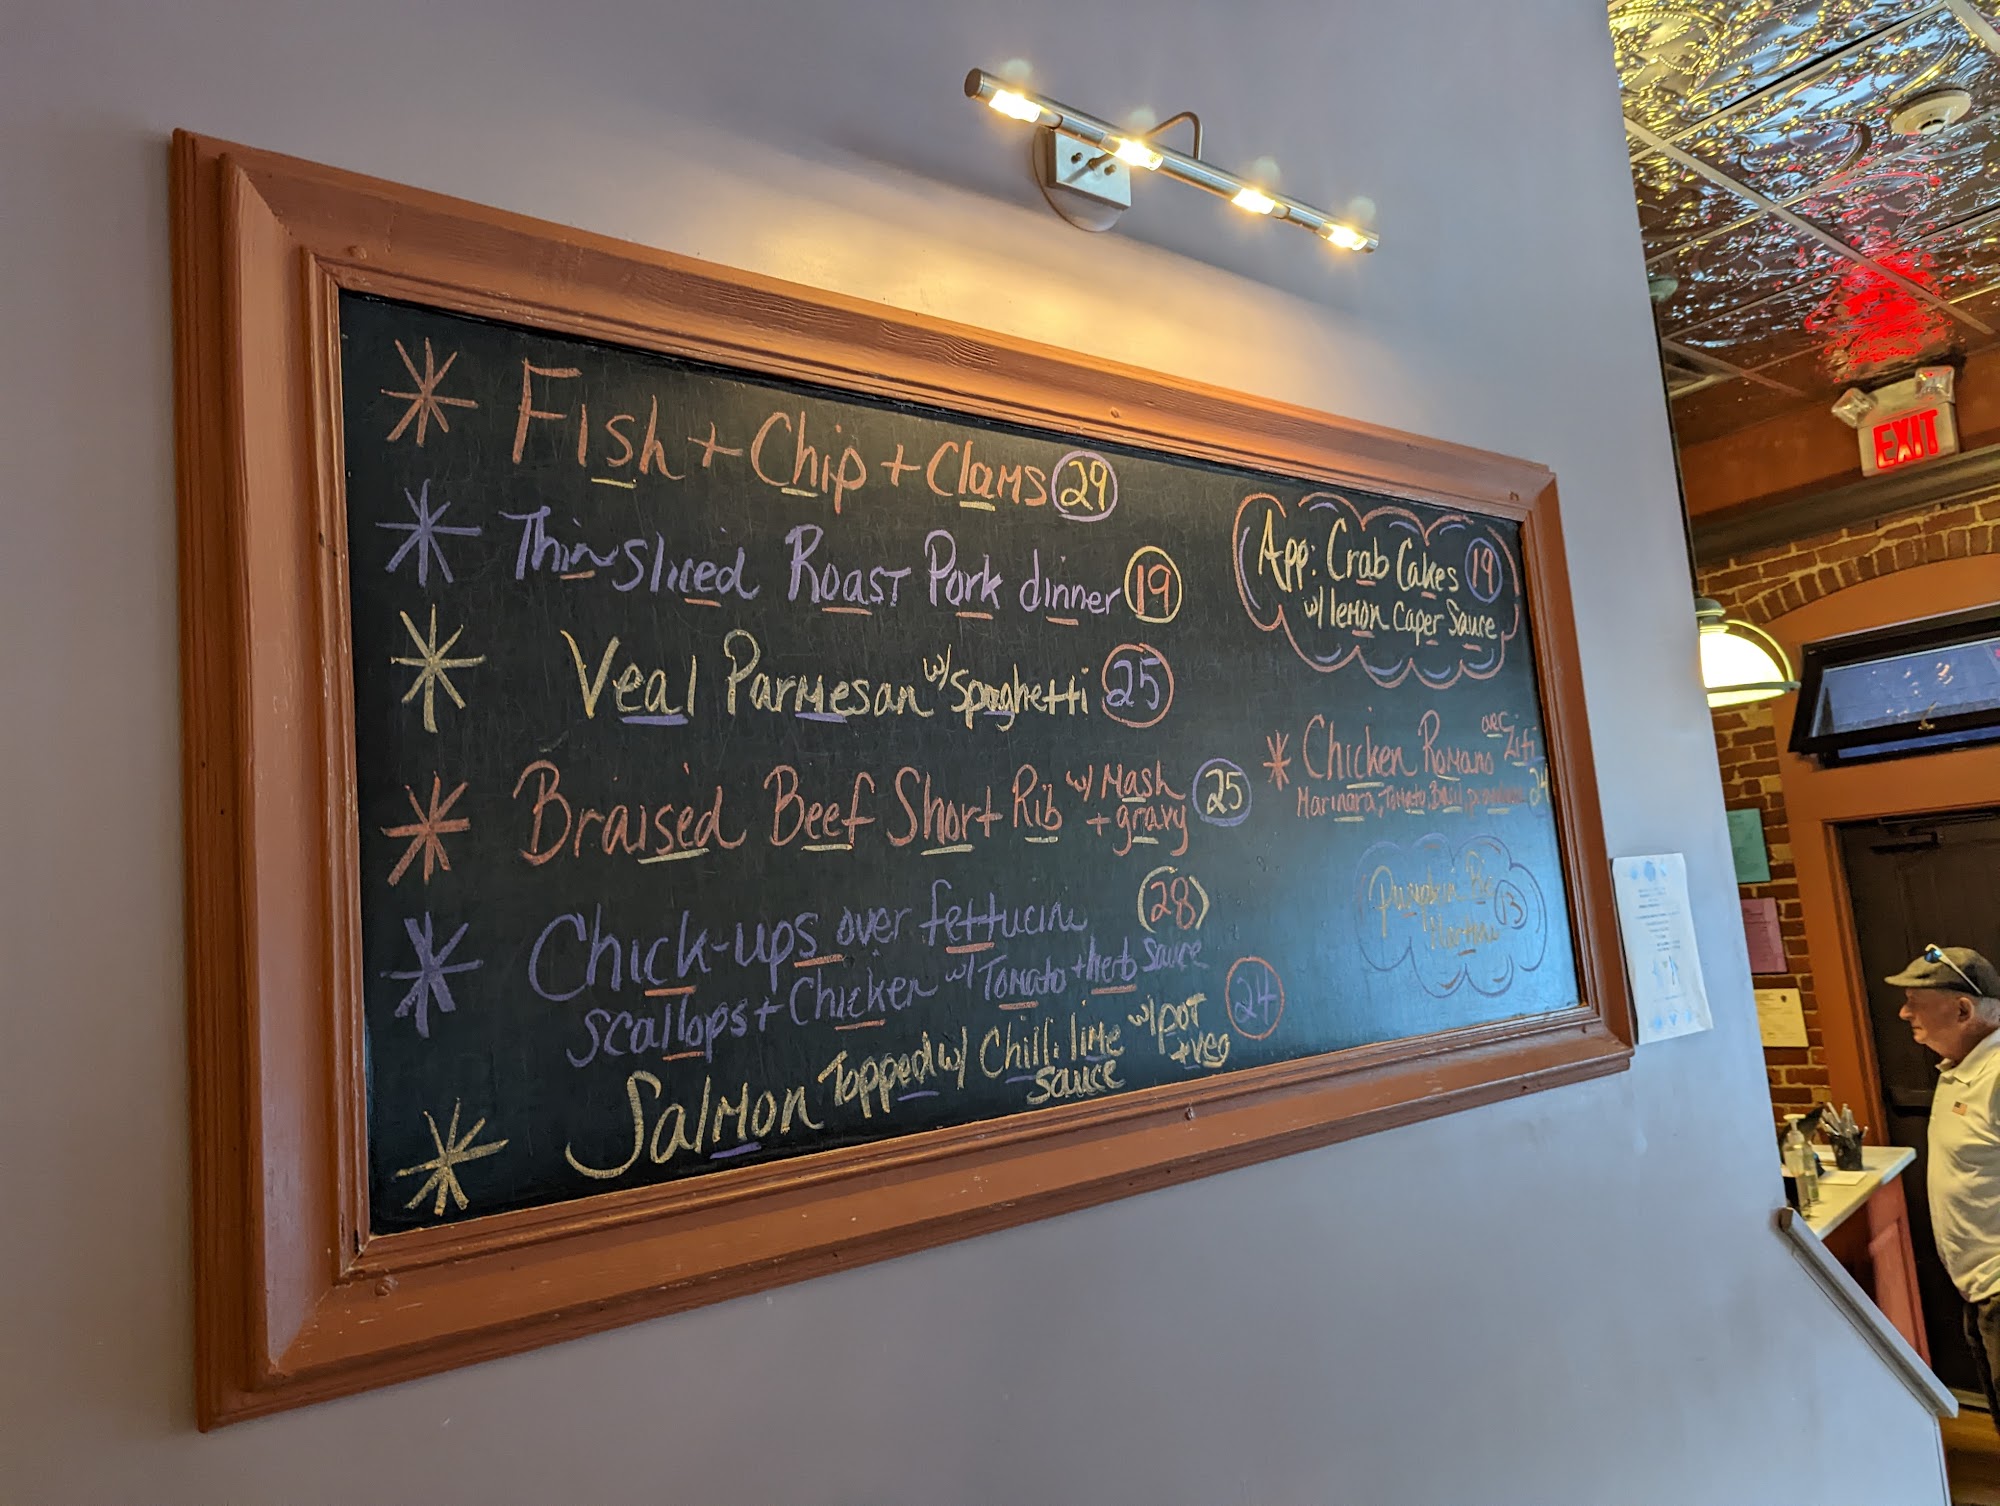 Fish + Chip + Clams 29
Thin sliced Roast Pork dinner 19
Veal Parmesan w/ Spaghetti 25
Braised Beef Short Rib w/ Mash + gravy 25
Chick-ups over fettucini 28
Scallops + Chicken w/ Tomato + herb sauce
Salmon Topped w/ Chili lime Sauce w/ pot + veg 24
App: Crab Cakes 19
w/ lemon caper Sauce
Chicken Romano over Ziti
Marinara, Tomato, Basil, 24
Pumpkin Pie 13
Martini
EXIT